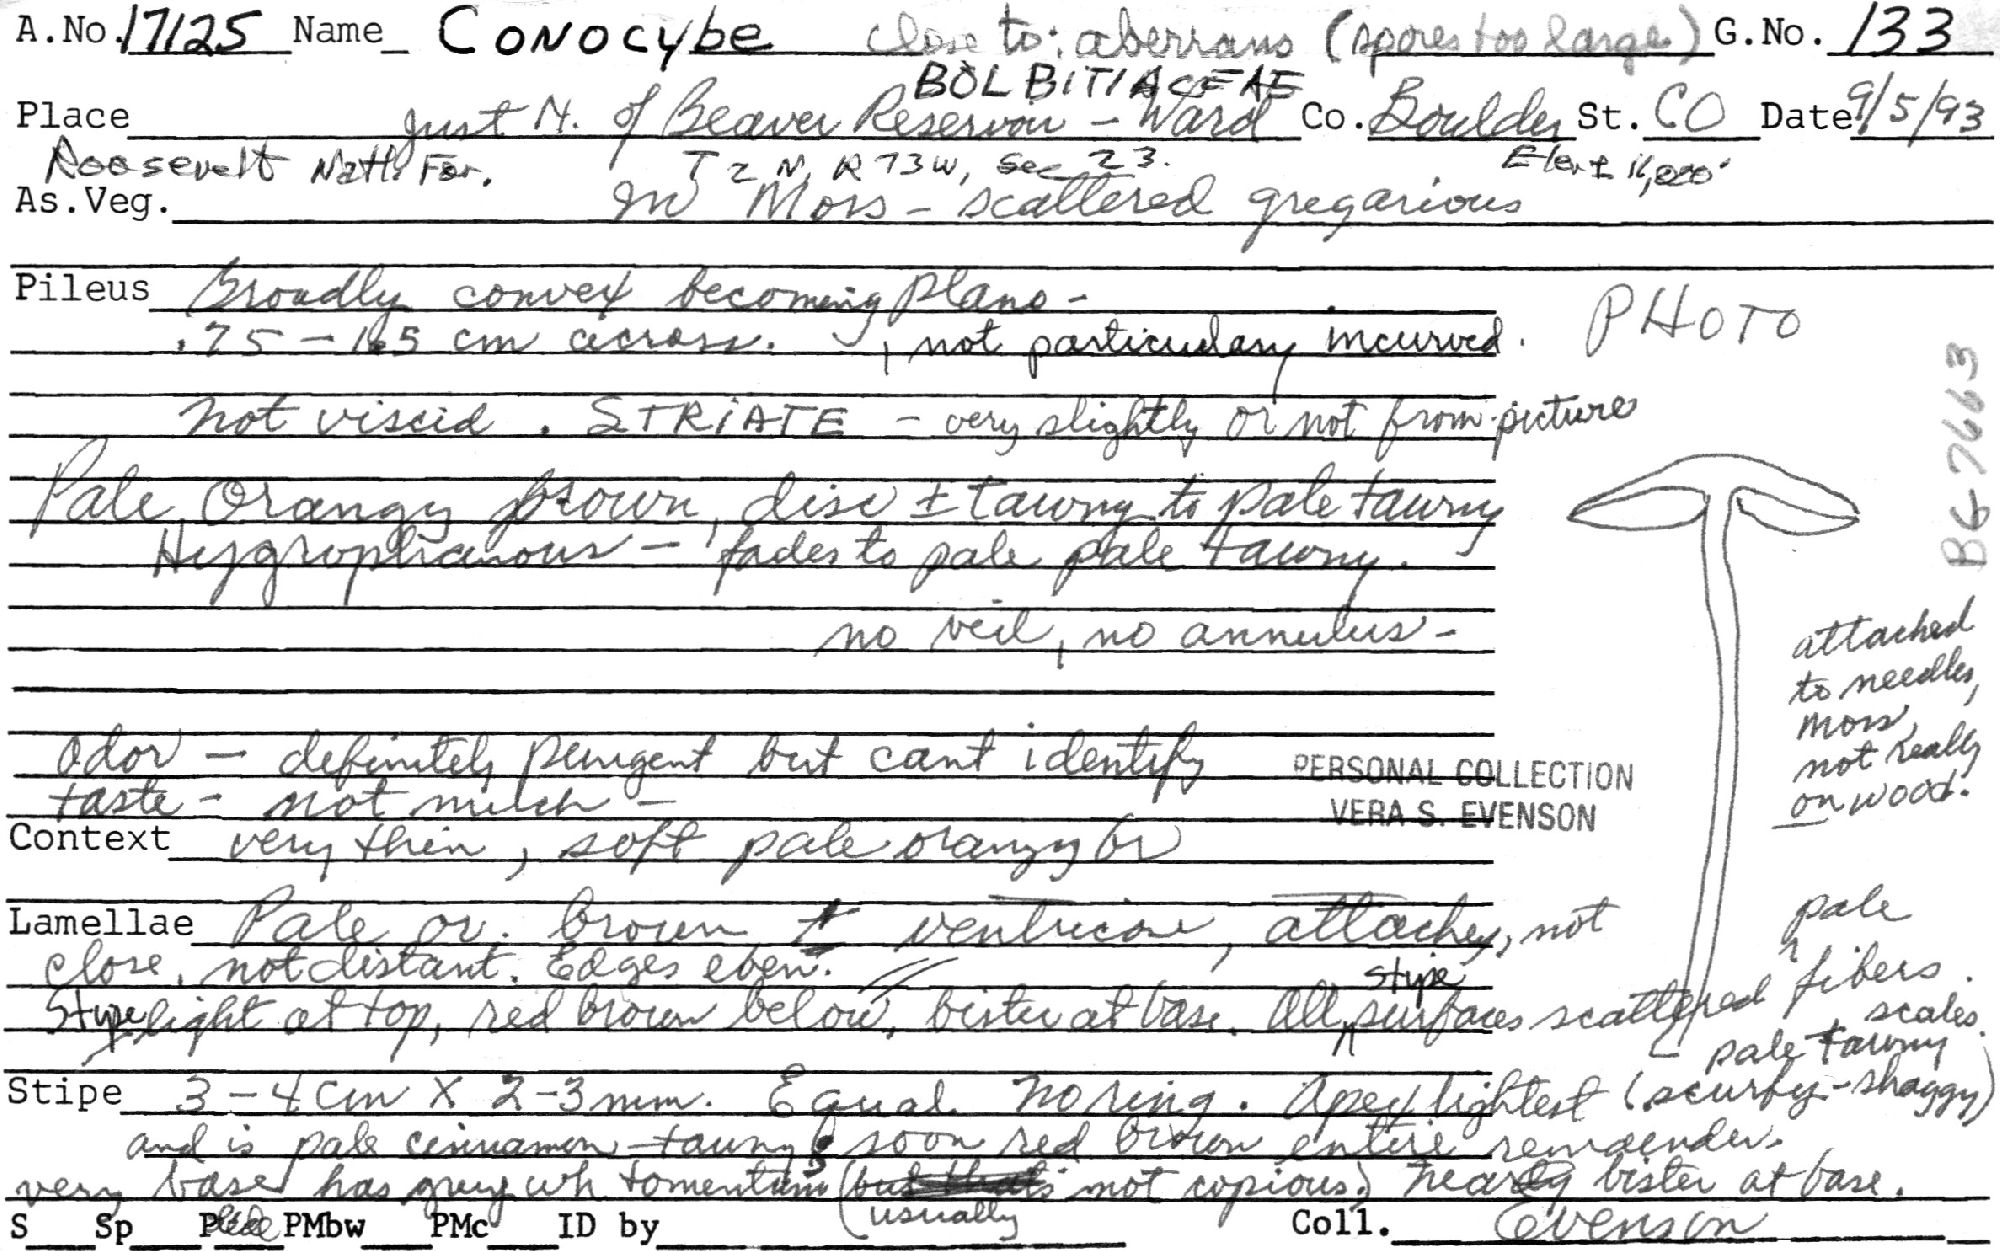 A.No. 17125 Name CONOCYbe close to: aberrans (spores too large) G.No. 133
BOLBITIACEAE
Place just N. of Beaver Reservoir - Ward Co. Boulder St. CO Date 9/5/93
Roosevelt Natl. For. T 2 N, R 73W, Sec 23. Elev ±
As.Veg. In Moss - scattered gregarious
Pileus Broadly convex becoming plane -
PHOTO
.75 - 1.5 cm across. , not particulary incurved.
not viscid. STRIATE - very slightly or not from picture
B67663
Pale Orangy brown, disc ± tawny to pale tawny
Hygrophanous - fades to pale pale tawny.
no veil, no annulus -
attached
to needles,
moss
not really
on wood.
Odor - definitely pungent but cant identify
taste - not much -
PERSONAL COLLECTION
VERA S. EVENSON
Context very thin, soft pale orangy br
Lamellae Pale or. brown ± ventricose, attached, not
close, not distant. Edges even.
Stipe light at top, red brown below, bister at base. All stipe surfaces scattered pale fibers.
scales.
pale tawny
Stipe 3-4 cm X 2-3 mm. Equal. No ring. Apex lightest (scurfy-shaggy)
and is pale cinnamon-tawny, soon red brown entire remainder.
very base has grey wh tomentum (usually not copious) nearly bister at base.
S Sp PMbw PMc ID by Coll. Evenson